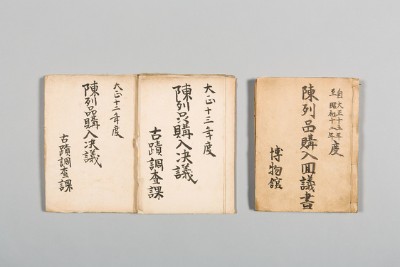 自大正十五年
至昭和十八年
度
陳列品購入回議書
博物館
大正十三年度
陳列品購入决議
古蹟調査課
大正十二年度
陳列品購入决議
古蹟調査課